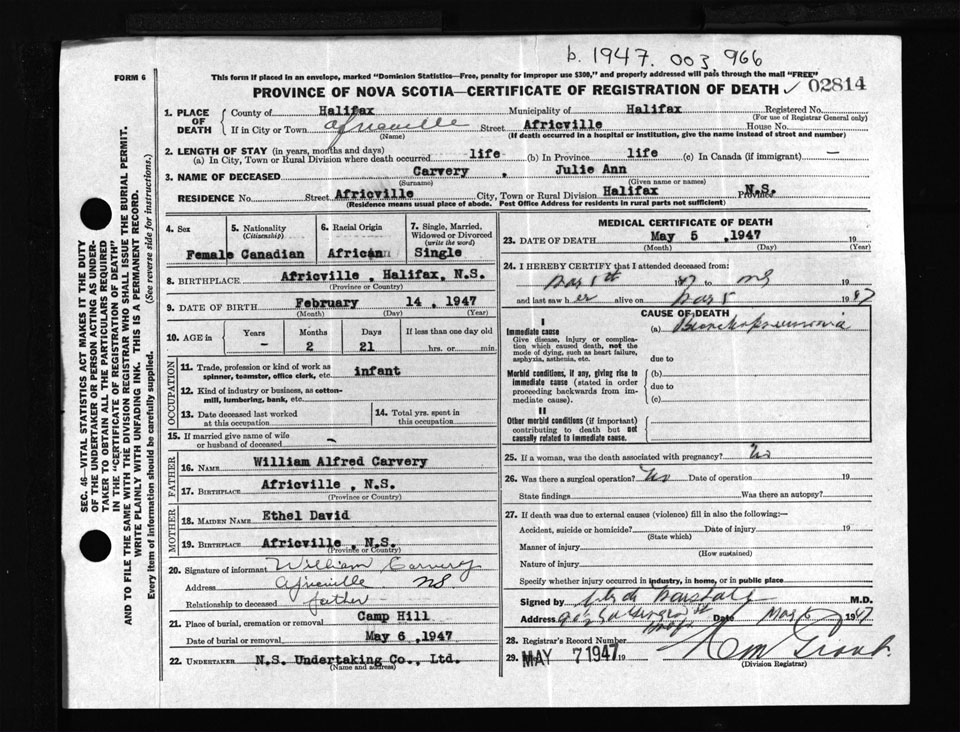 b. 1947. 003 966
FORM 6
This form if placed in an envelope, marked "Dominion Statistics—Free, penalty for improper use $300," and properly addressed will pass through the mail "FREE"
PROVINCE OF NOVA SCOTIA—CERTIFICATE OF REGISTRATION OF DEATH ✓ 02814
SEC. 46—VITAL STATISTICS ACT MAKES IT THE DUTY
OF THE UNDERTAKER OR PERSON ACTING AS UNDER-
TAKER TO OBTAIN ALL THE PARTICULARS REQUIRED
IN THE "CERTIFICATE OF REGISTRATION OF DEATH"
AND TO FILE THE SAME WITH THE DIVISION REGISTRAR WHO SHALL ISSUE THE BURIAL PERMIT.
WRITE PLAINLY WITH UNFADING INK. THIS IS A PERMANENT RECORD.
Every item of information should be carefully supplied. (See reverse side for instructions.)
1. PLACE OF DEATH County of Halifax Municipality of Halifax Registered No.
(For use of Registrar General only)
If in City or Town Africville Street Africville House No.
(Name) (If death occurred in a hospital or institution, give the name instead of street and number)
2. LENGTH OF STAY (in years, months and days)
(a) In City, Town or Rural Division where death occurred life (b) In Province life (c) In Canada (if immigrant) —
3. NAME OF DECEASED Carvery , Julie Ann
(Surname) (Given name or names)
RESIDENCE No. Street Africville City, Town or Rural Division Halifax Province N.S.
(Residence means usual place of abode. Post Office Address for residents in rural parts not sufficient)
4. Sex 5. Nationality (Citizenship) 6. Racial Origin 7. Single, Married, Widowed or Divorced (write the word)
Female Canadian African Single
8. BIRTHPLACE Africville, Halifax, N.S.
(Province or Country)
9. DATE OF BIRTH February 14, 1947
(Month) (Day) (Year)
10. AGE in Years Months Days If less than one day old
- 2 21 hrs. or min.
OCCUPATION
11. Trade, profession or kind of work as spinner, teamster, office clerk, etc. infant
12. Kind of industry or business, as cotton-mill, lumbering, bank, etc.
13. Date deceased last worked at this occupation
14. Total yrs. spent in this occupation
15. If married give name of wife or husband of deceased -
FATHER
16. Name William Alfred Carvery
17. Birthplace Africville, N.S.
(Province or Country)
MOTHER
18. Maiden Name Ethel David
19. Birthplace Africville, N.S.
(Province or Country)
20. Signature of informant William Carvery
Address Africville NS
Relationship to deceased father
21. Place of burial, cremation or removal Camp Hill
Date of burial or removal May 6, 1947
22. Undertaker N.S. Undertaking Co., Ltd.
(Name and address)
MEDICAL CERTIFICATE OF DEATH
23. DATE OF DEATH May 5, 1947 19
(Month) (Day) (Year)
24. I HEREBY CERTIFY that I attended deceased from:
19 47 to 19
and last saw her alive on 1947
CAUSE OF DEATH
I
Immediate cause (a) Bronchopneumonia
Give disease, injury or complication which caused death, not the mode of dying, such as heart failure, asphyxia, asthenia, etc.
due to
Morbid conditions, if any, giving rise to immediate cause (stated in order proceeding backwards from immediate cause).
(b)
due to
(c)
II
Other morbid conditions (if important) contributing to death but not causally related to immediate cause.
25. If a woman, was the death associated with pregnancy? No
26. Was there a surgical operation? No Date of operation 19
State findings Was there an autopsy?
27. If death was due to external causes (violence) fill in also the following:—
Accident, suicide or homicide? Date of injury 19
(State which)
Manner of injury
(How sustained)
Nature of injury
Specify whether injury occurred in industry, in home, or in public place
Signed by M.D.
Address Date May 6 1947
28. Registrar's Record Number
29. MAY 7 1947 19
(Division Registrar)